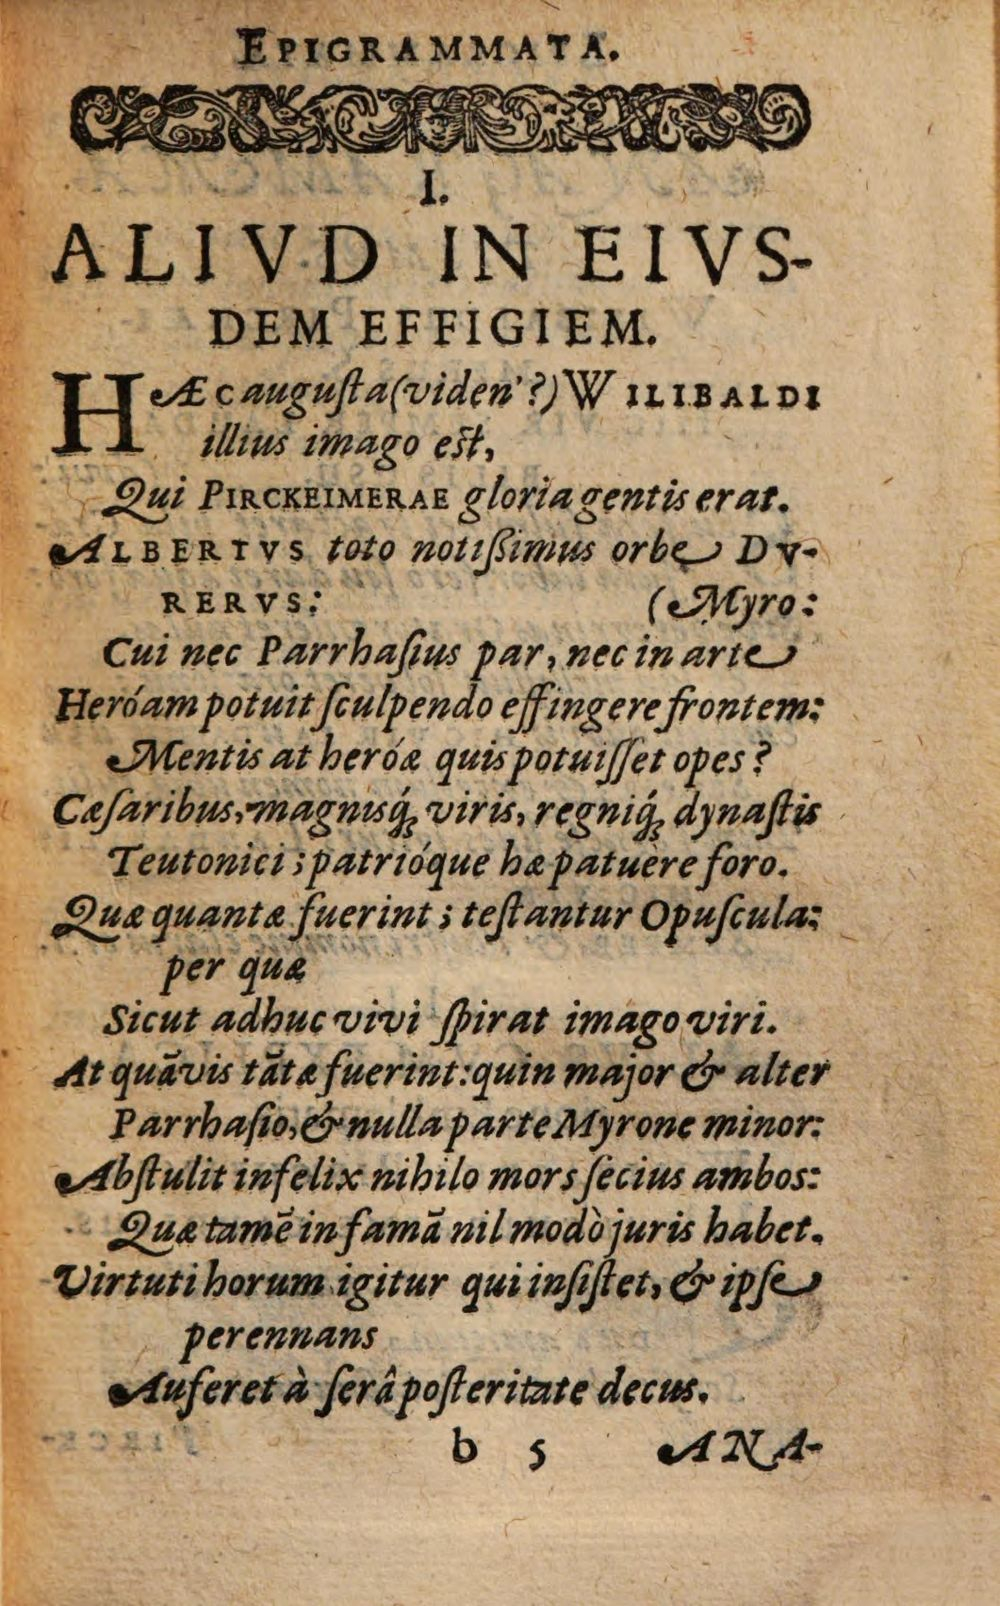 EPIGRAMMATA.
I.
ALIVD IN EIVS-
DEM EFFIGIEM.
HÆC auguſta (viden'?) WILIBALDI
illius imago eſt,
Qui PIRCKEIMERAE gloria gentis erat.
ALBERTVS toto notiſſimus orbe DV-
RERVS: (Myro:
Cui nec Parrhaſius par, nec in arte
Heróam potuit ſculpendo effingere frontem:
Mentis at heróæ quis potuiſſet opes?
Cæſaribus, magnisq́; viris, regniq́; dynaſtis
Teutonici; patrióque hæ patuère foro.
Quæ quantæ fuerint; teſtantur Opuſcula:
per quæ
Sicut adhuc vivi ſpirat imago viri.
At quãvis tãtæ fuerint: quin major & alter
Parrhaſio, & nulla parte Myrone minor:
Abſtulit infelix nihilo mors ſecius ambos:
Quæ tamẽ in famã nil modò juris habet.
Virtuti horum igitur qui inſiſtet, & ipſe
perennans
Auferet à ſerâ poſteritate decus.
b 5 ANA-